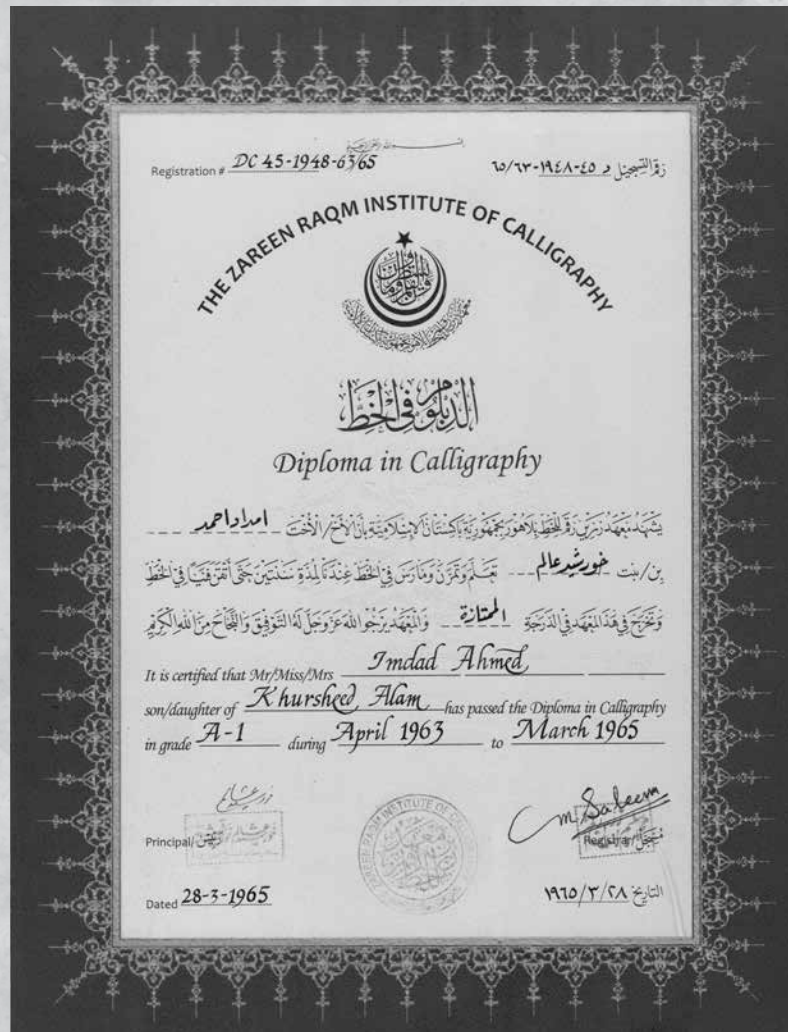 Registration # DC 45-1948-63/65
رقم التسجيل د ٤٥-١٩٤٨-٦٥/٦٣
THE ZAREEN RAQM INSTITUTE OF CALLIGRAPHY
الدِّبلُومُ فِي الخَطِّ
Diploma in Calligraphy
يَشْهَدُ مَعْهَدُ زَرِّين رَقَم لِلْخَطِّ بِلَاهُور بِجُمْهُورِيَّةِ بَاكِسْتَانَ الإِسْلَامِيَّةِ بِأَنَّ الأَخَ/الأُخْتَ امداداحمد
بِن/بنت خورشیدعالم تَعَلَّمَ وَتَمَرَّنَ وَمَارَسَ فِي الخَطِّ عِنْدَنَا لِمُدَّةِ سَنَتَيْنِ حَتَّى أَتْقَنَ فَنِّيًّا فِي الخَطِّ
وَتَخَرَّجَ فِي هَذَا المَعْهَدِ فِي الدَّرَجَةِ الممتازة وَالمَعْهَدُ يَرْجُو اللهَ عَزَّ وَجَلَّ لَهُ التَّوْفِيقَ وَالنَّجَاحَ مِنَ اللهِ الكَرِيْمِ
It is certified that Mr/Miss/Mrs Imdad Ahmed
son/daughter of Khursheed Alam has passed the Diploma in Calligraphy
in grade A-1 during April 1963 to March 1965
M Saleem
Principal/
Registrar/مُسَجِّل
ZAREEN RAQM INSTITUTE OF CALLIGRAPHY
Dated 28-3-1965
التاريخ ١٩٦٥/٣/٢٨